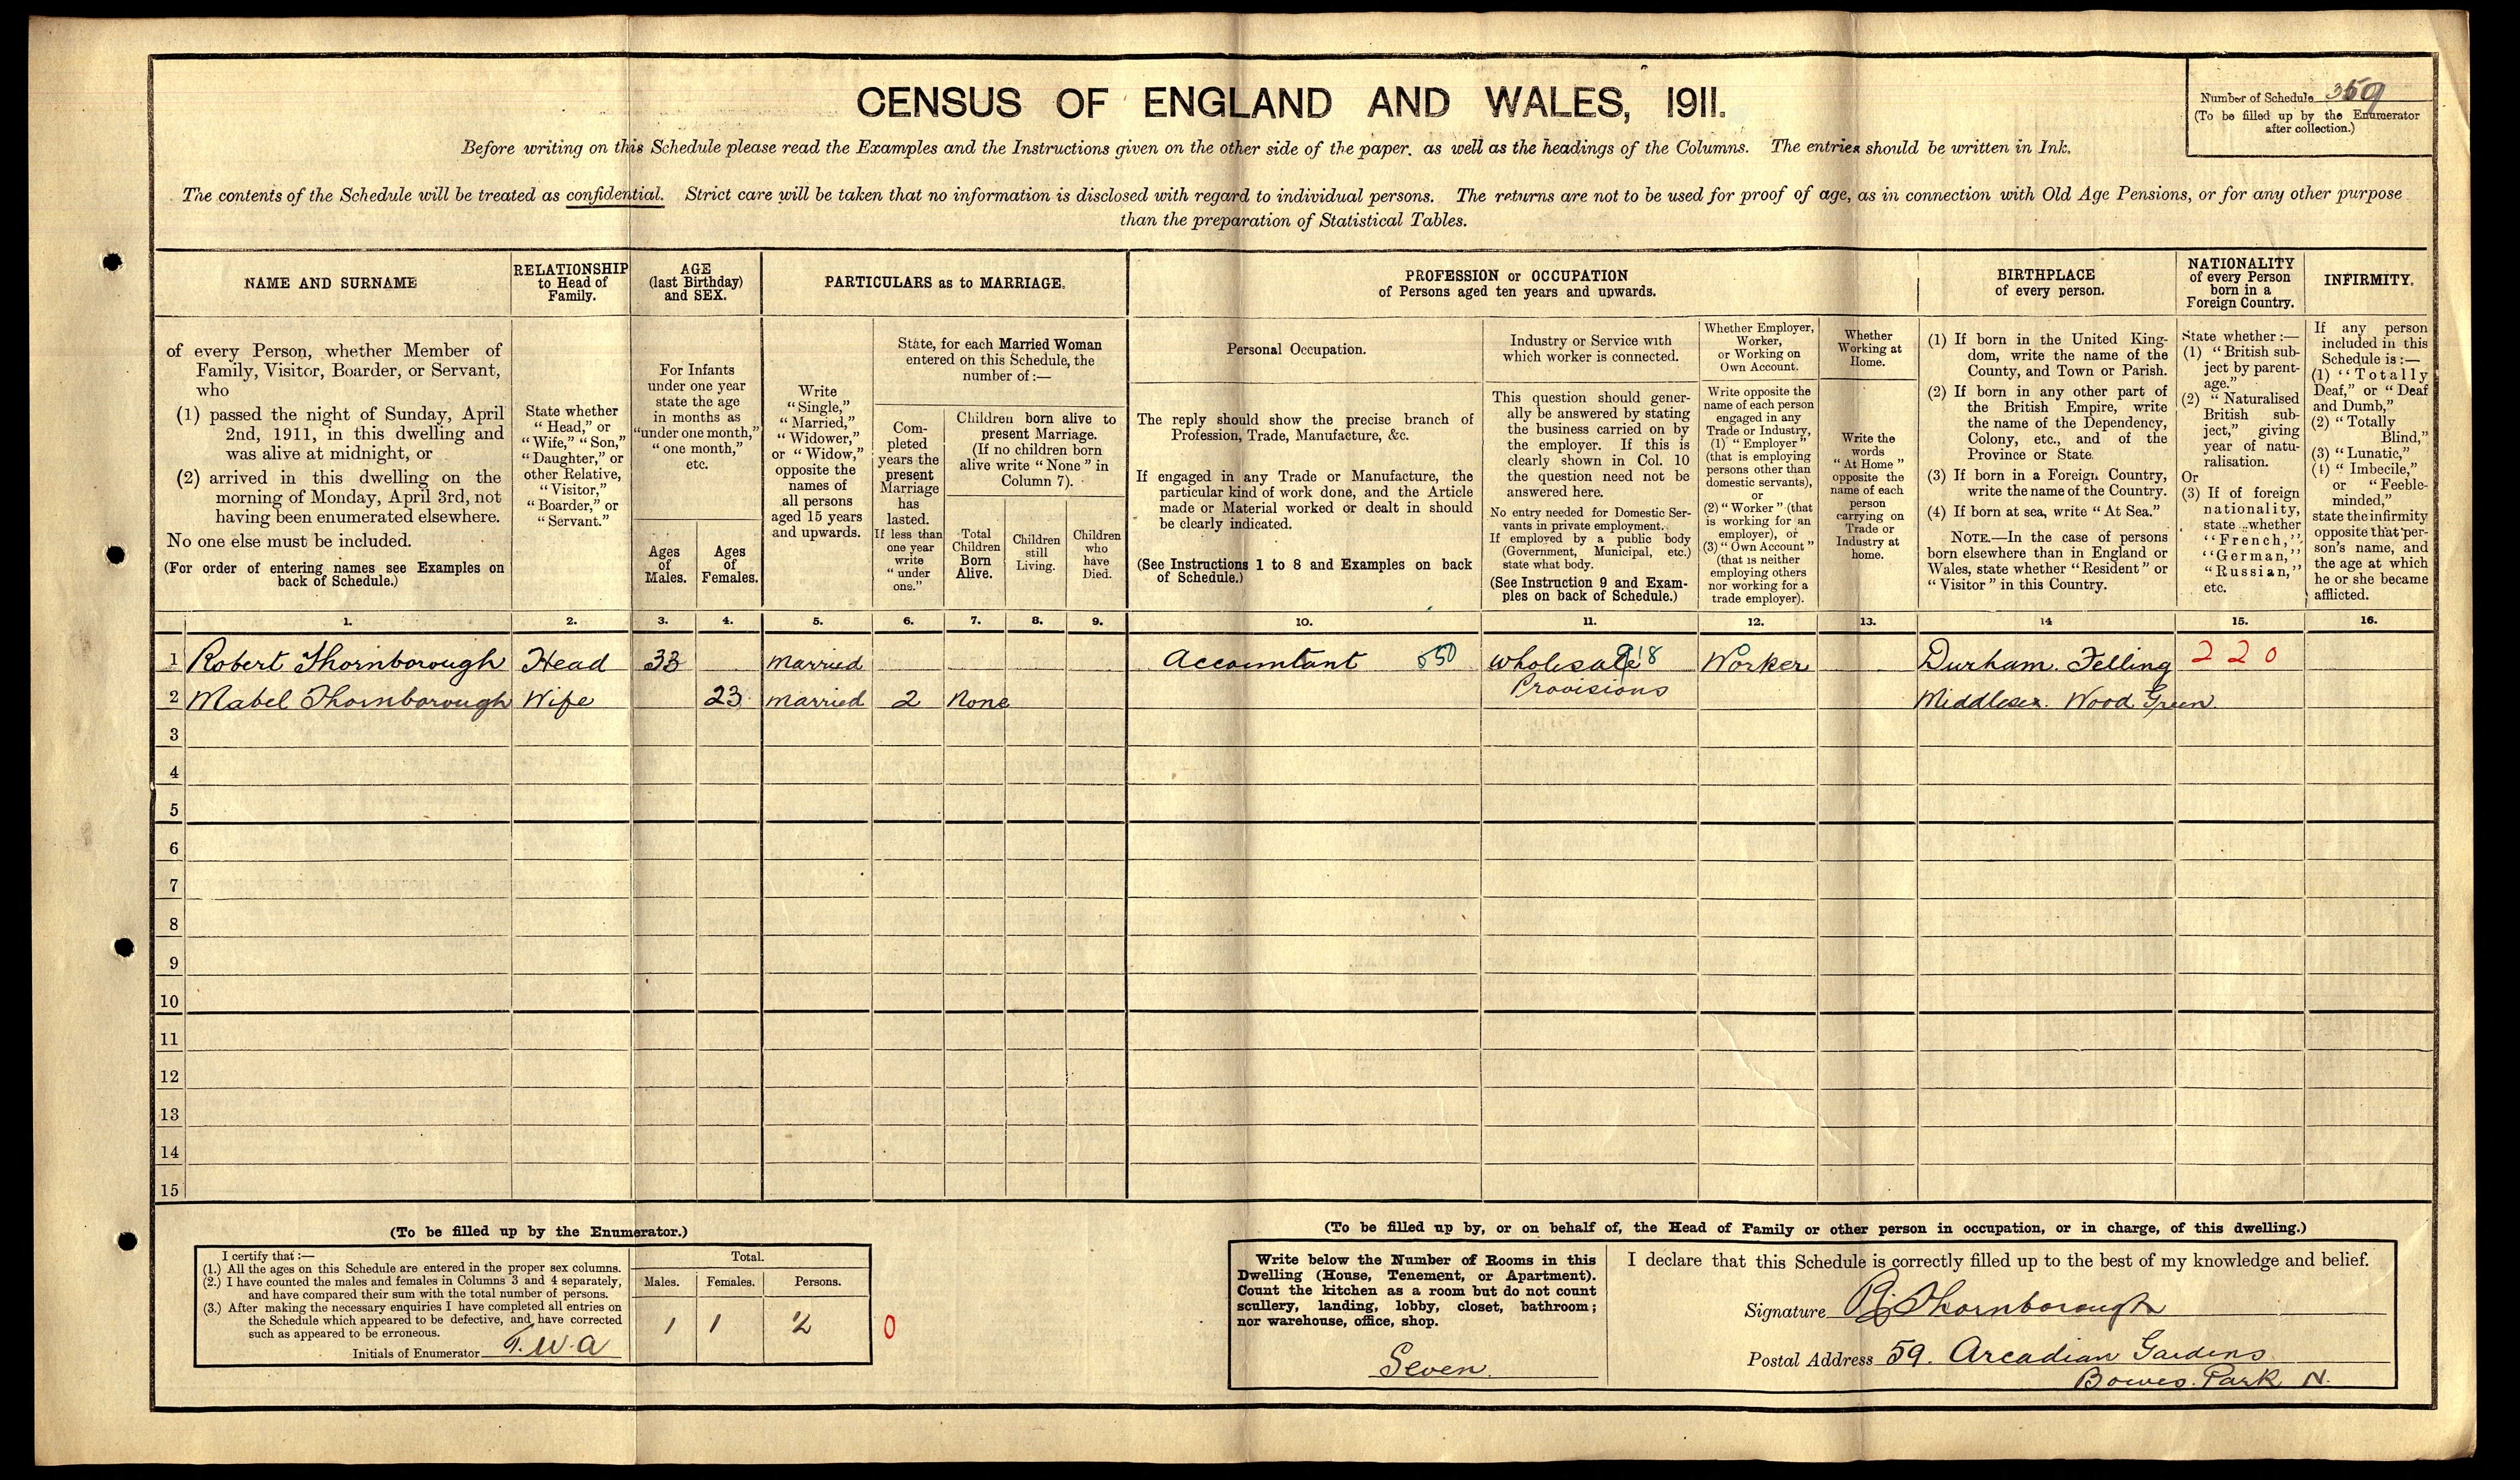 CENSUS OF ENGLAND AND WALES, 1911.
Number of Schedule
(To be filled up by the Enumerator
after collection.)
Before writing on this Schedule please read the Examples and the Instructions given on the other side of the paper, as well as the headings of the Columns. The entries should be written in Ink.
The contents of the Schedule will be treated as confidential. Strict care will be taken that no information is disclosed with regard to individual persons. The returns are not to be used for proof of age, as in connection with Old Age Pensions, or for any other purpose
than the preparation of Statistical Tables.
NAME AND SURNAME
of every Person, whether Member of
Family, Visitor, Boarder, or Servant,
who
(1) passed the night of Sunday, April
2nd, 1911, in this dwelling and
was alive at midnight, or
(2) arrived in this dwelling on the
morning of Monday, April 3rd, not
having been enumerated elsewhere.
No one else must be included.
(For order of entering names see Examples on
back of Schedule.)
RELATIONSHIP
to Head of
Family.
State whether
"Head," or
"Wife," "Son,"
"Daughter," or
other Relative,
"Visitor,"
"Boarder," or
"Servant."
AGE
(last Birthday)
and SEX.
For Infants
under one year
state the age
in months as
"under one month,"
"one month,"
etc.
Ages
of
Males.
Ages
of
Females.
PARTICULARS as to MARRIAGE.
Write
"Single,"
"Married,"
"Widower,"
or "Widow,"
opposite the
names of
all persons
aged 15 years
and upwards.
State, for each Married Woman
entered on this Schedule, the
number of:—
Com-
pleted
years the
present
Marriage
has
lasted.
If less than
one year
write
"under
one."
Children born alive to
present Marriage.
(If no children born
alive write "None" in
Column 7).
Total
Children
Born
Alive.
Children
still
Living.
Children
who
have
Died.
PROFESSION or OCCUPATION
of Persons aged ten years and upwards.
Personal Occupation.
The reply should show the precise branch of
Profession, Trade, Manufacture, &c.
If engaged in any Trade or Manufacture, the
particular kind of work done, and the Article
made or Material worked or dealt in should
be clearly indicated.
(See Instructions 1 to 8 and Examples on back
of Schedule.)
Industry or Service with
which worker is connected.
This question should gener-
ally be answered by stating
the business carried on by
the employer. If this is
clearly shown in Col. 10
the question need not be
answered here.
No entry needed for Domestic Ser-
vants in private employment.
If employed by a public body
(Government, Municipal, etc.)
state what body.
(See Instruction 9 and Exam-
ples on back of Schedule.)
Whether Employer,
Worker,
or Working on
Own Account.
Write opposite the
name of each person
engaged in any
Trade or Industry,
(1) "Employer"
(that is employing
persons other than
domestic servants),
or
(2) "Worker" (that
is working for an
employer), or
(3) "Own Account"
(that is neither
employing others
nor working for a
trade employer).
Whether
Working at
Home.
Write the
words
"At Home"
opposite the
name of each
person
carrying on
Trade or
Industry at
home.
BIRTHPLACE
of every person.
(1) If born in the United King-
dom, write the name of the
County, and Town or Parish.
(2) If born in any other part of
the British Empire, write
the name of the Dependency,
Colony, etc., and of the
Province or State.
(3) If born in a Foreign Country,
write the name of the Country.
(4) If born at sea, write "At Sea."
NOTE.—In the case of persons
born elsewhere than in England or
Wales, state whether "Resident" or
"Visitor" in this Country.
NATIONALITY
of every Person
born in a
Foreign Country.
State whether:—
(1) "British sub-
ject by parent-
age."
(2) "Naturalised
British sub-
ject," giving
year of natu-
ralisation.
Or
(3) If of foreign
nationality,
state whether
"French,"
"German,"
"Russian,"
etc.
INFIRMITY.
If any person
included in this
Schedule is:—
(1) "Totally
Deaf," or "Deaf
and Dumb,"
(2) "Totally
Blind,"
(3) "Lunatic,"
(4) "Imbecile,"
or "Feeble-
minded,"
state the infirmity
opposite that per-
son's name, and
the age at which
he or she became
afflicted.
1. 2. 3. 4. 5. 6. 7. 8. 9. 10. 11. 12. 13. 14 15. 16.
1 Robert Thornborough Head 33 Married Accountant 550 Wholesale 918 Worker Durham. Felling 220
Provisions
2 Mabel Thornborough Wife 23 Married 2 None Middlesex. Wood Green.
3
4
5
6
7
8
9
10
11
12
13
14
15
(To be filled up by the Enumerator.)
I certify that:—
(1.) All the ages on this Schedule are entered in the proper sex columns.
(2.) I have counted the males and females in Columns 3 and 4 separately,
and have compared their sum with the total number of persons.
(3.) After making the necessary enquiries I have completed all entries on
the Schedule which appeared to be defective, and have corrected
such as appeared to be erroneous.
Initials of Enumerator T.W.A
Total.
Males. Females. Persons.
1 1 2 0
(To be filled up by, or on behalf of, the Head of Family or other person in occupation, or in charge, of this dwelling.)
Write below the Number of Rooms in this
Dwelling (House, Tenement, or Apartment).
Count the kitchen as a room but do not count
scullery, landing, lobby, closet, bathroom;
nor warehouse, office, shop.
Seven.
I declare that this Schedule is correctly filled up to the best of my knowledge and belief.
Signature R Thornborough
Postal Address 59. Arcadian Gardens
Bowes. Park N.